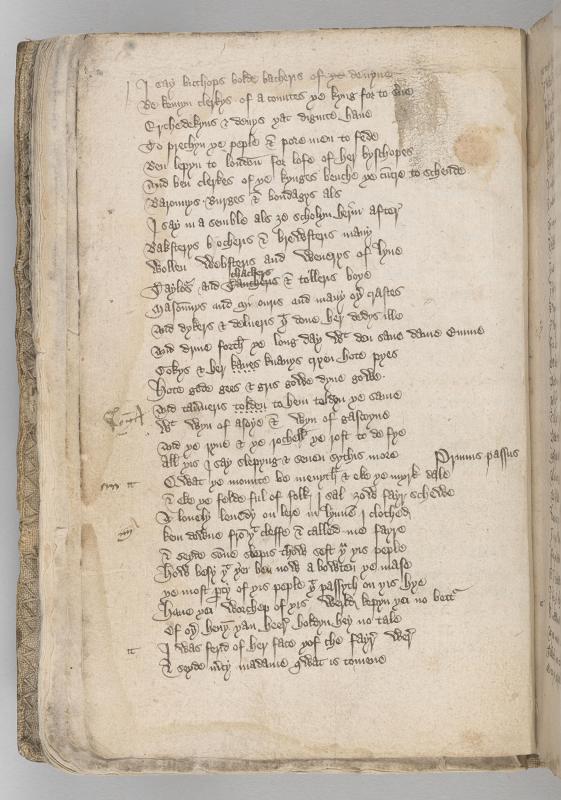 I say bischops bolde bachers of ye devyne
Be comyn clerkys of acountes ye kyng for to
Erchedeknys & denys yat dignite have
To prechyn ye peple & pore men to fede
Ben lepyn to london for lofe of her byschopes
And ben clerkes of ye kynges benche ye cuntre to schende
Baronnys Burges & bondagys als
I say in asemble als ze scholyn heryn after
Baksterys bocheris & brewsteris many
Wollen websteris and weverys of lyne
chacheris
Taylors and & tolleris boye
Masonnys and mynouris and many oyer craftes
And dykers & delveris yt done her dedys ille
And dryve forth ye long day wt deu save dame Emme
Cokys & her knavys cryen hote pyes
Hote gode gees & grys gowe dyne gowe
And taverneris tolden to hem toldyn ye same
Wt wyn of asoye & wyn of gascoyne
And ye ryne & ye rochell ye rost to defye
All yis I say slepyng & seven sythis more
Primus passus
Qwat ye mounte be menyth & eke ye myrk dale
& eke ye felde ful of folk I sal zow fayr schewe
A lovely levedy on lere in lynnen I clothed
kem downe fro yt cleffe & called me fayre
& seyde sone slepis thow sest yu yis peple
How besy yt yei ben now abowten ye mase
ye most party of yis peple yt passyth on yis hye
Have yei worchep of yis werld kepyn yei no bettr
Of oyer hevyn yan heer holdyn hey no tale
I was ferd of her face yof sche fayr wer
& seyde mercy madame qwat is to mene